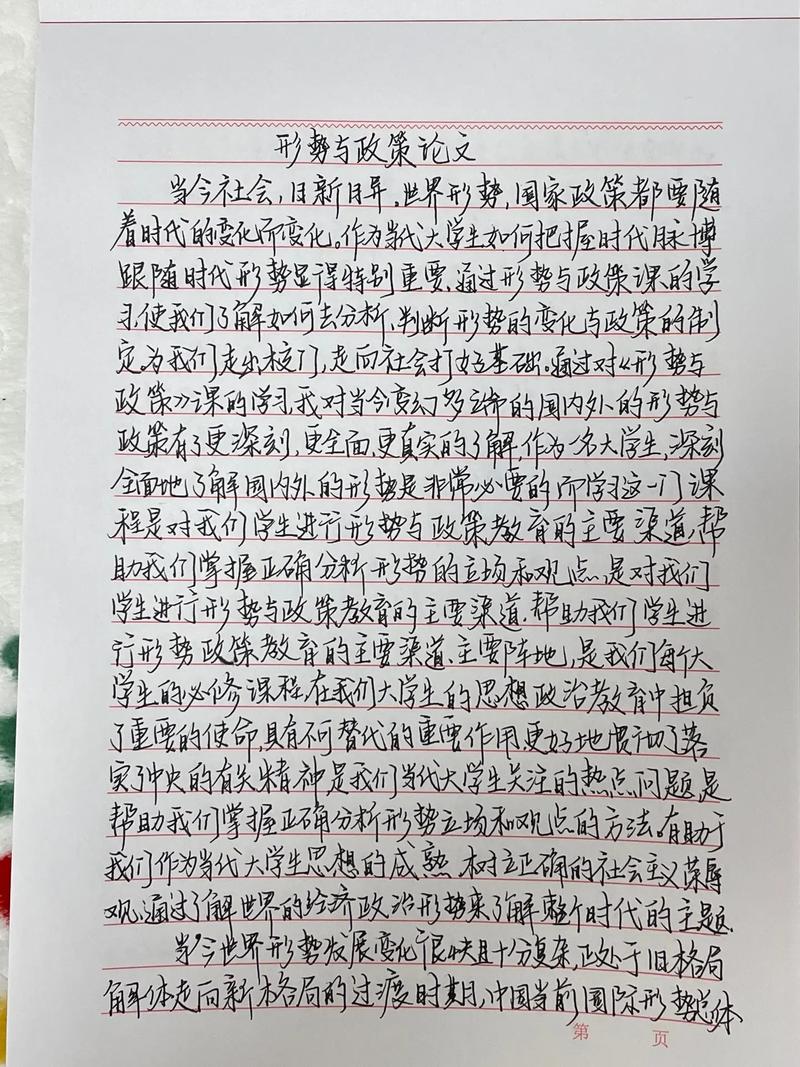 形势与政策论文
当今社会，日新月异。世界形势，国家政策都要随
着时代的变化而变化。作为当代大学生如何把握时代脉博
跟随时代形势显得特别重要、通过形势与政策课的学
习、使我们了解如何去分析、判断形势的变化与政策的制
定。为我们走出校门，走向社会打好基础。通过对《形势与
政策》课的学习，我对当今变幻多端的国内外的形势与
政策有了更深刻、更全面、更真实的了解，作为一名大学生，深刻
全面地了解国内外的形势是非常必要的而学习这一门课
程是对我们学生进行形势与政策教育的主要渠道，帮
助我们掌握正确分析形势的立场和观点、是对我们
学生进行形势与政策教育的主要渠道.帮助我们学生进
行形势政策教育的主要渠道、主要阵地，是我们每个大
学生的必修课程，在我们大学生的思想政治教育中担负
了重要的使命，具有不可替代的重要作用，更好地贯彻了落
实了中央的有关精神是我们当代大学生关注的热点问题，是
帮助我们掌握正确分析形势立场和观点的方法。有助于
我们作为当代大学生思想的成熟、树立正确的社会主义荣辱
观、通过了解世界的经济政治形势来了解整个时代的主题.
当今世界形势发展变化很快且十分复杂，正处于旧格局
解体走向新格局的过渡时期，中国当前国际形势总体
第 页